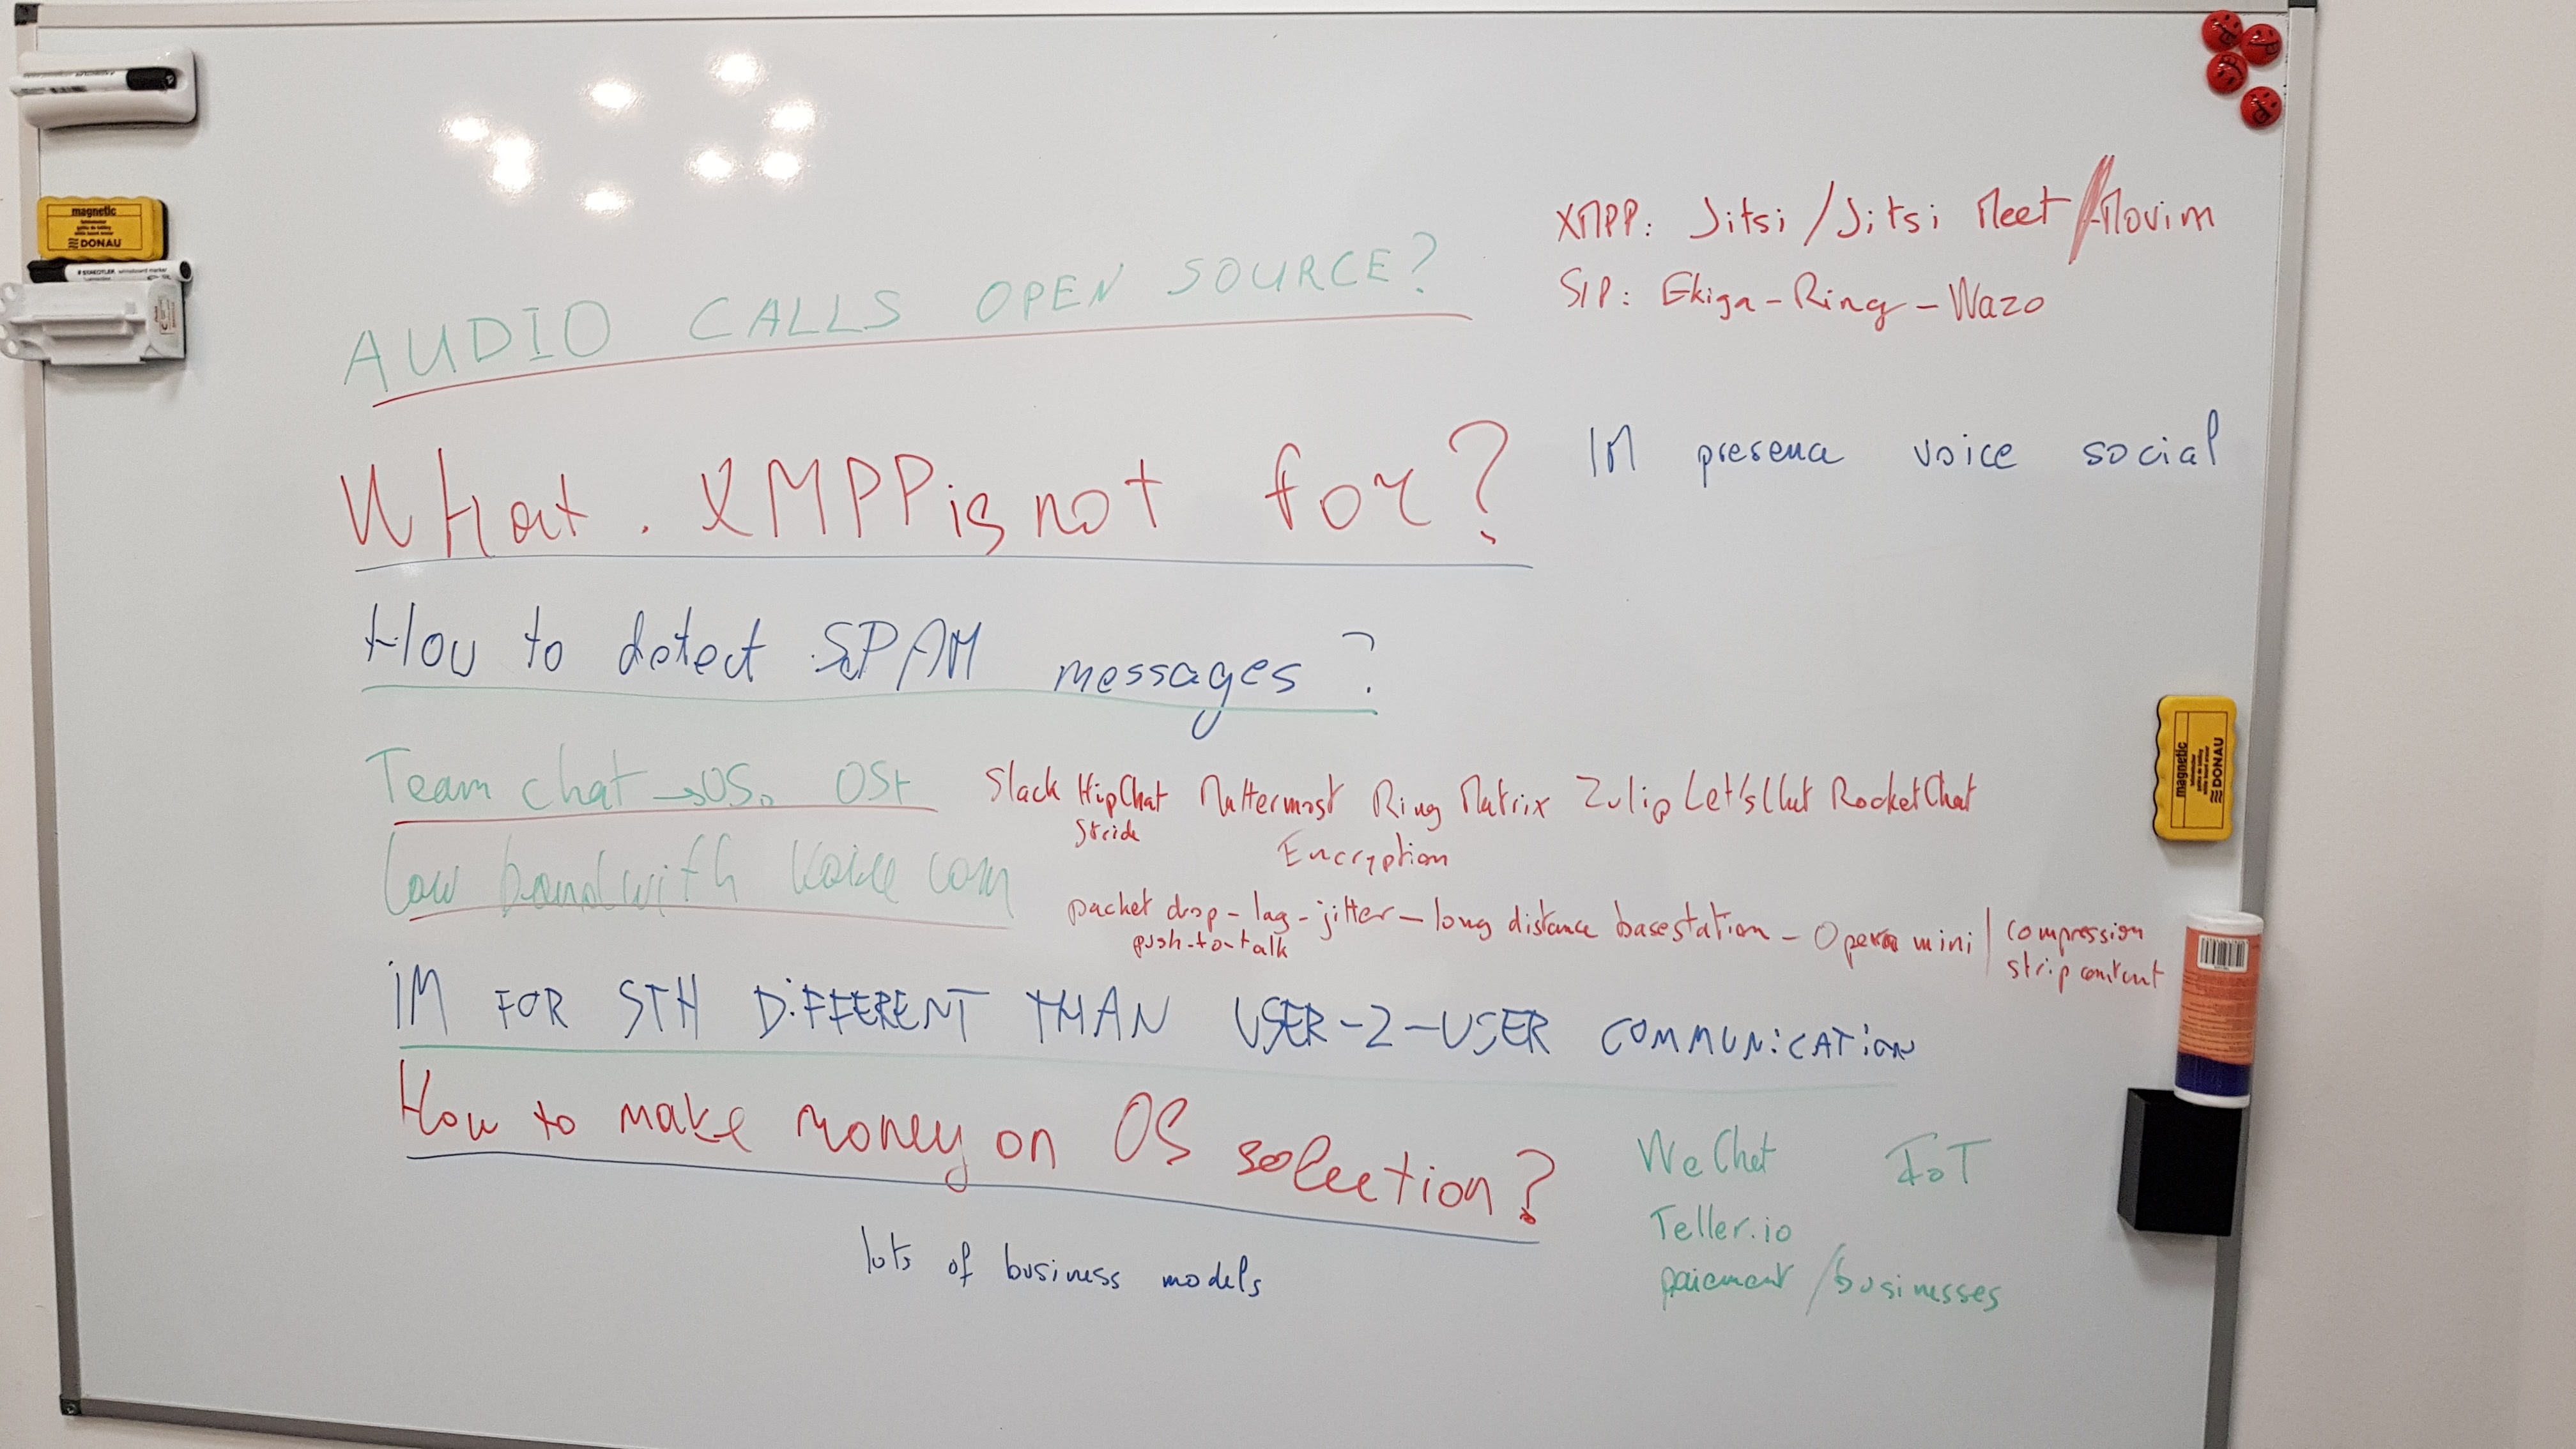 magnetic
DONAU
STAEDTLER
XMPP: Jitsi / Jitsi Meet / Movim
AUDIO CALLS OPEN SOURCE?
SIP: Ekiga - Ring - Wazo
What XMPP is not for?
IM presence voice social
How to detect SPAM messages?
Team chat → OS
Slack HipChat Mattermost Ring Matrix Zulip Let's Chat RocketChat
Stride
Encryption
Low bandwith voice com
packet drop - lag - jitter - long distance basestation - Opera mini | compression
push-to-talk
strip content
IM FOR STH DIFFERENT THAN USER-2-USER COMMUNICATION
How to make money on OS solection?
WeChat IoT
Teller.io
paiement / businesses
lots of business models
magnetic
DONAU